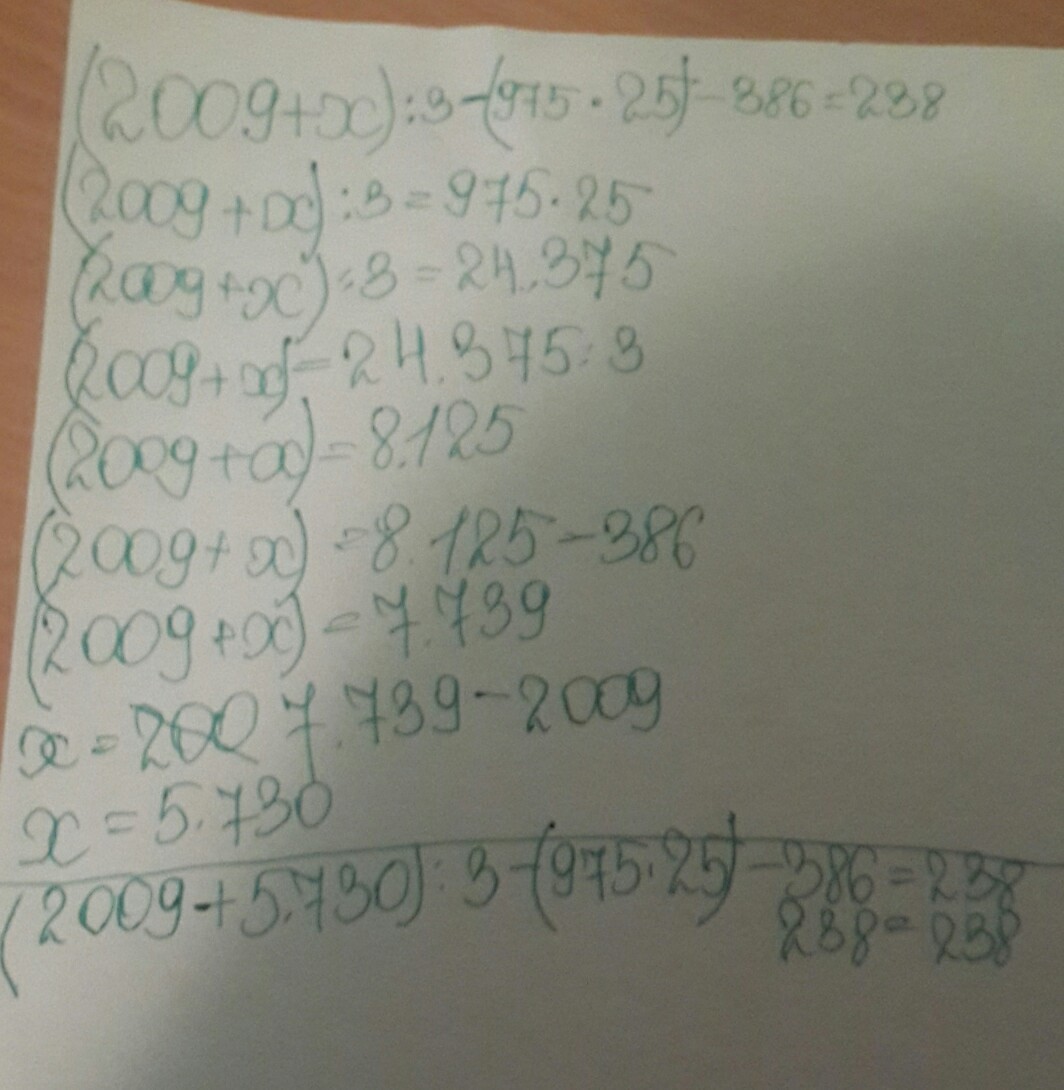 (2009+x):3-(975·25)-386=238
(2009+x):3=975·25
(2009+x):3=24.375
(2009+x)=24.375:3
(2009+x)=8.125
(2009+x)=8.125-386
(2009+x)=7.739
x=200 7.739-2009
x=5.730
(2009+5.730):3-(975·25)-386=238
238=238